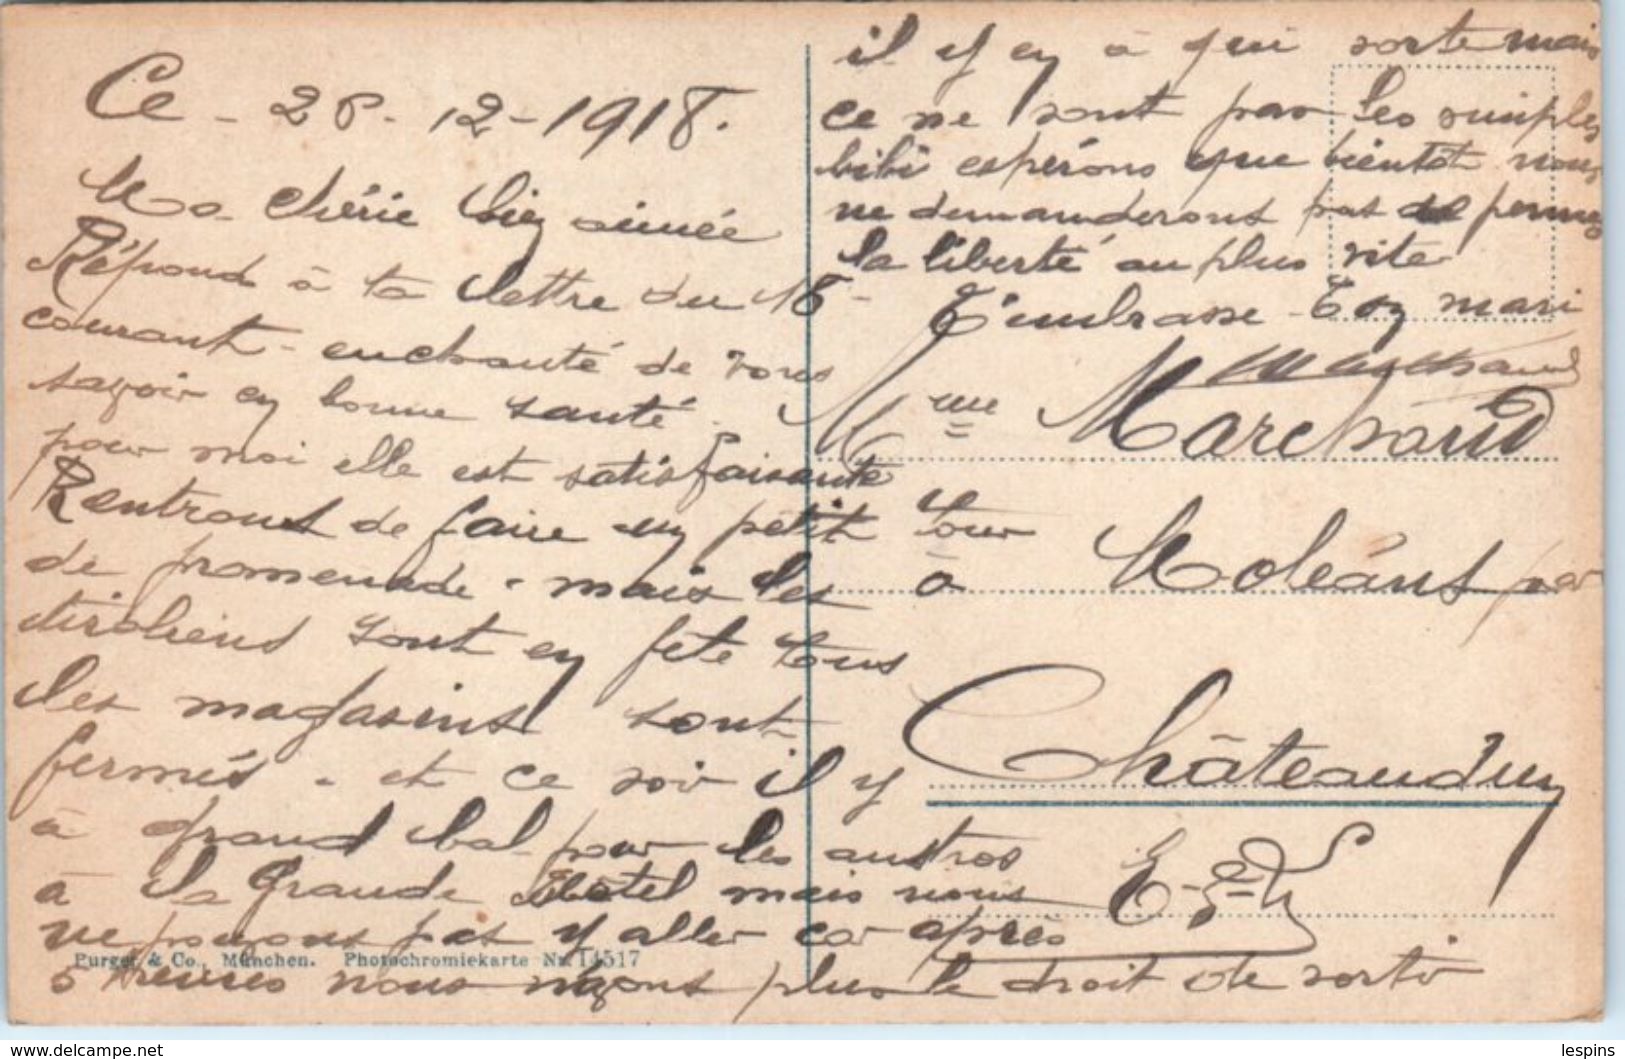 Ce - 28 - 12 - 1918.
Ma chérie bien aimée
Répond à ta lettre du 18
courant - enchanté de vous
savoir en bonne santé.
pour moi elle est satisfaisante
Rentrons de faire un petit tour
de promenade. mais les
tiroliens sont en fête tous
les magasins sont
fermés. et ce soir il y
à grand bal pour les austros
à la Grande Hôtel mais nous
ne pouvons pas y aller car après
5 heures nous n'avons plus le droit de sortir
il y en à qui sorte mais
ce ne sont pas les simples
bibi espérons que bientot nous
ne demanderons pas de permis
la liberté au plus vite
T'embrasse Ton mari
Marchand
Mme Marchand
à Moléans par
Châteaudun
E-&-L
Purger & Co., München. Photochromiekarte Nr. 14517
lespins
delcampe.net